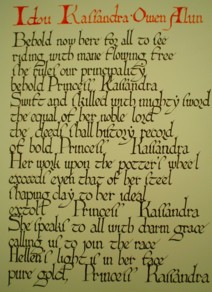 Idou Kassandra Owen Alun
Behold now here for all to see
riding with mane flowing free
she rules our principality
behold Princess Kassandra
Swift and skilled with mighty sword
the equal of her noble lord
the deeds shall history record
of bold Princess Kassandra
Her work upon the potter's wheel
exceeds even that of her steel
shaping clay to her ideal
extoll Princess Kassandra
She speaks to all with charm grace
calling us to join the race
Hellen's light is in her face
pure gold, Princess Kassandra